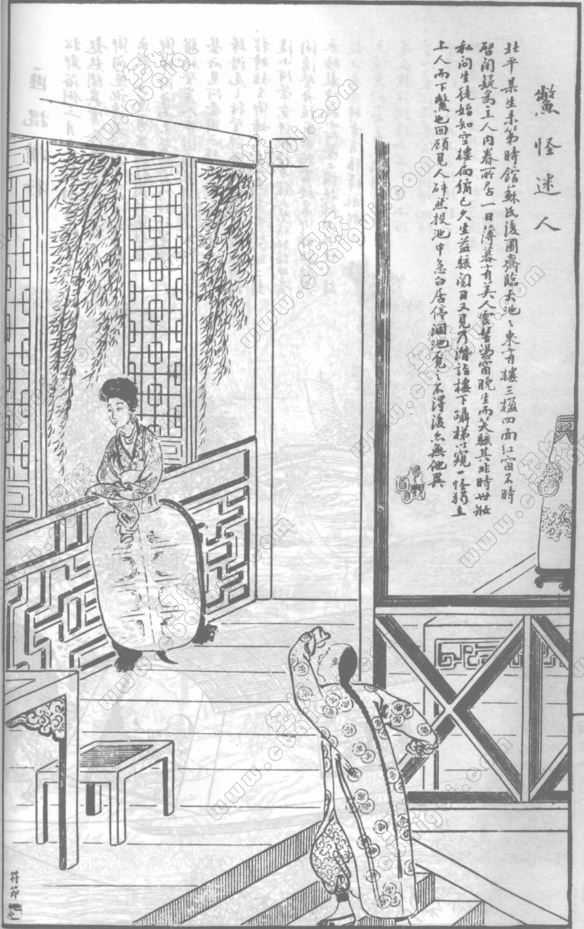 鱉怪迷人
北平某生未第時館蘇氏後圃齋臨大池〻東有樓三楹四面紅窗不時
啓閉疑爲主人內眷所居一日薄暮有美人雲髻憑窗睨生而笑駭其非時世妝
私問生徒始知空樓扃鐍已久生益駭閱日又見乃潛詣樓下躡梯以窺一怪獨立
上人而下鱉也回顧見人砰然投池中急白居停涸池覓〻不得後亦無他異
符節
www.cbaigui.com